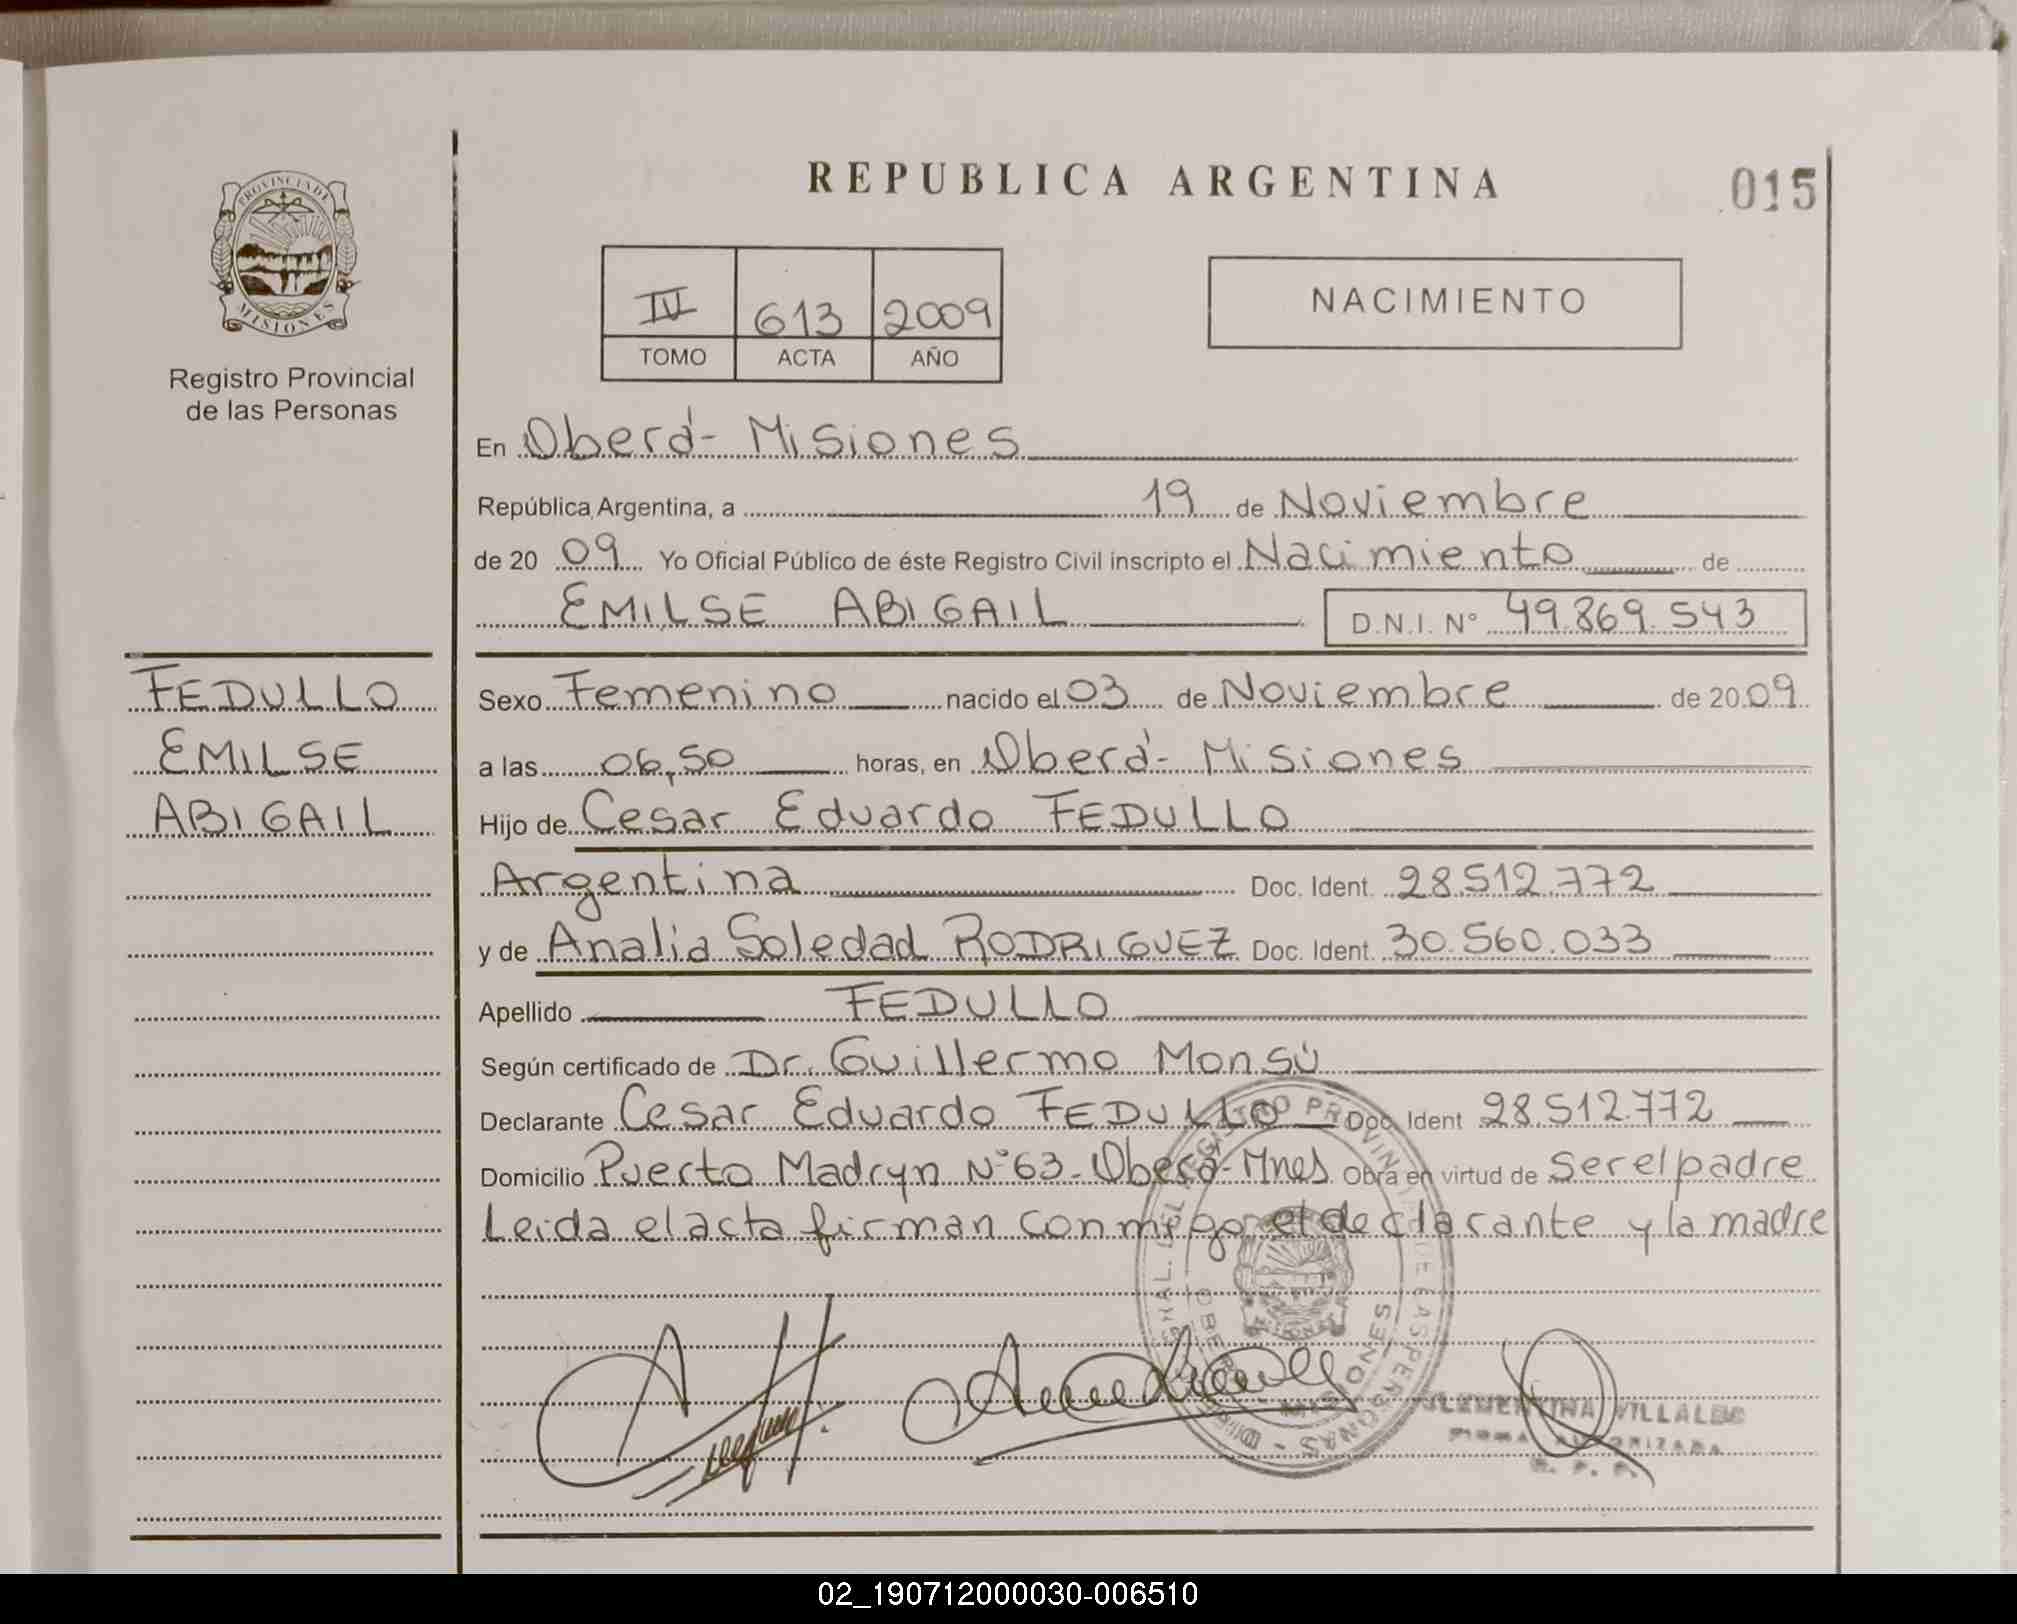 PROVINCIA DE
MISIONES
Registro Provincial
de las Personas
FEDULLO
EMILSE
ABIGAIL
REPUBLICA ARGENTINA
015
IV 613 2009
TOMO ACTA AÑO
NACIMIENTO
En Oberá - Misiones
República Argentina, a 19 de Noviembre
de 20 09 Yo Oficial Público de éste Registro Civil inscripto el Nacimiento de
EMILSE ABIGAIL D.N.I. Nº 49.869.543
Sexo Femenino nacido el 03 de Noviembre de 20 09
a las 06,50 horas, en Oberá - Misiones
Hijo de Cesar Eduardo FEDULLO
Argentina Doc. Ident. 28.512.772
y de Analia Soledad RODRIGUEZ Doc. Ident. 30.560.033
Apellido FEDULLO
Según certificado de Dr. Guillermo Monsú
Declarante Cesar Eduardo FEDULLO Doc. Ident 28.512.772
Domicilio Puerto Madryn Nº 63 - Oberá - Mnes Obra en virtud de ser el padre
Leida el acta firman conmigo el declarante y la madre
REGISTRO PROVINCIAL DE LAS PERSONAS
MISIONES
CLEMENTINA VILLALBA
FIRMA AUTORIZADA
R. P. P.
02_190712000030-006510